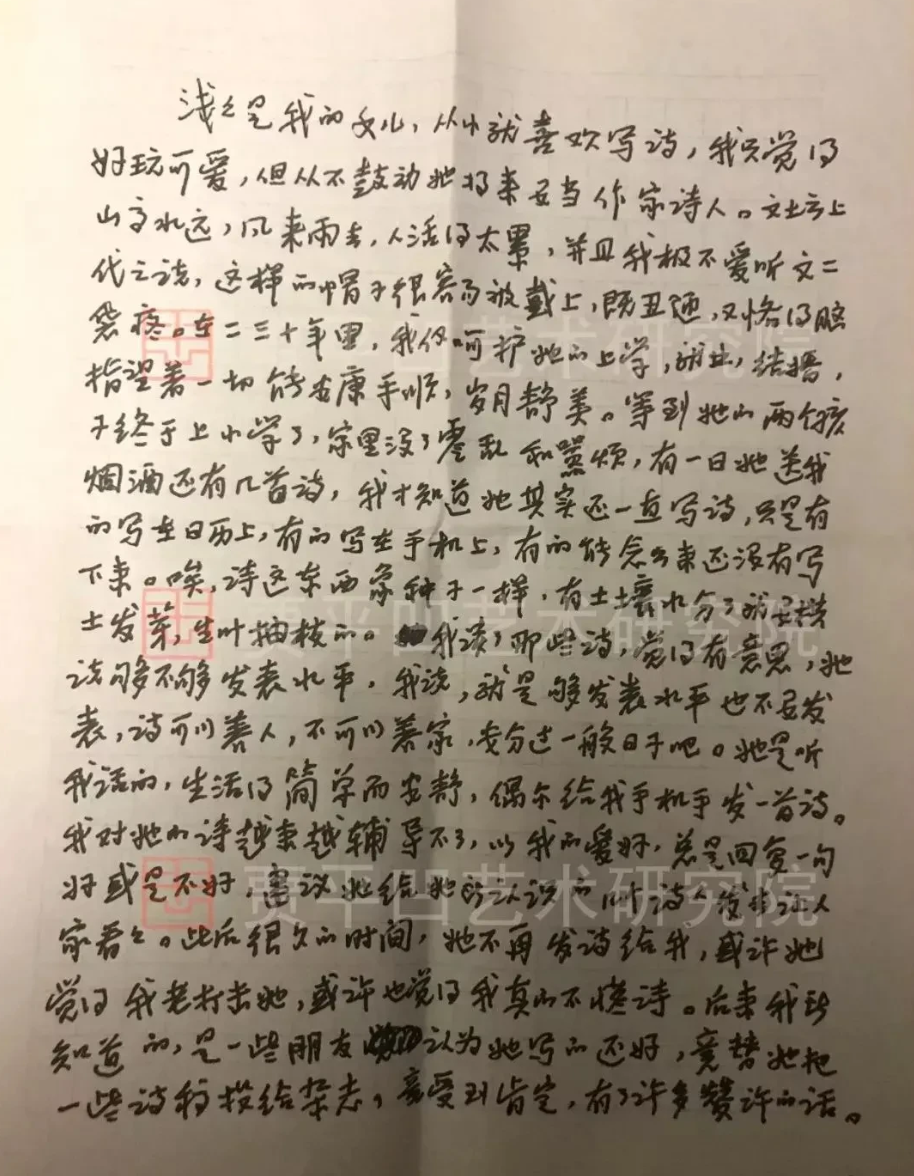 浅浅是我的女儿，从小就喜欢写诗，我只觉得
好玩可爱，但从不鼓动她将来要当作家诗人。文坛上
山高水远，风来雨去，人活得太累，并且我极不爱听文二
代之说，这样的帽子很容易被戴上，既丑陋，又恪得脑
袋疼。在二三十年里，我仅呵护她的上学，就业，结婚，
指望着一切能安康手顺，岁月静美。等到她的两个孩
子终于上小学了，家里没了零乱和嚣烦，有一日她送我
烟酒还有几首诗，我才知道她其实还一直写诗，只是有
的写在日历上，有的写在手机上，有的能念出来还没有写
下来。唉，诗这东西象种子一样，有土壤水分了就要拱
土发芽，生叶抽枝的。我读了那些诗，觉得有意思，她
说够不够发表水平，我说，就是够发表水平也不要发
表，诗可以养人，不可以养家，安分过一般日子吧。她是听
我话的，生活得简单而安静，偶尔给我手机手发一首诗。
我对她的诗越来越辅导不了，以我的爱好，总是回复一句
好或是不好，建议她给她所认识的诗人发去让人
家看看。此后很久的时间，她不再发诗给我，或许她
觉得我老打击她，或许也觉得我真的不懂诗。后来我所
知道的，是一些朋友认为她写的还好，竟替她把
一些诗稿投给杂志，竟受到肯定，有了许多赞许的话。
贾平凹艺术研究院
贾平凹艺术研究院
贾平凹艺术研究院